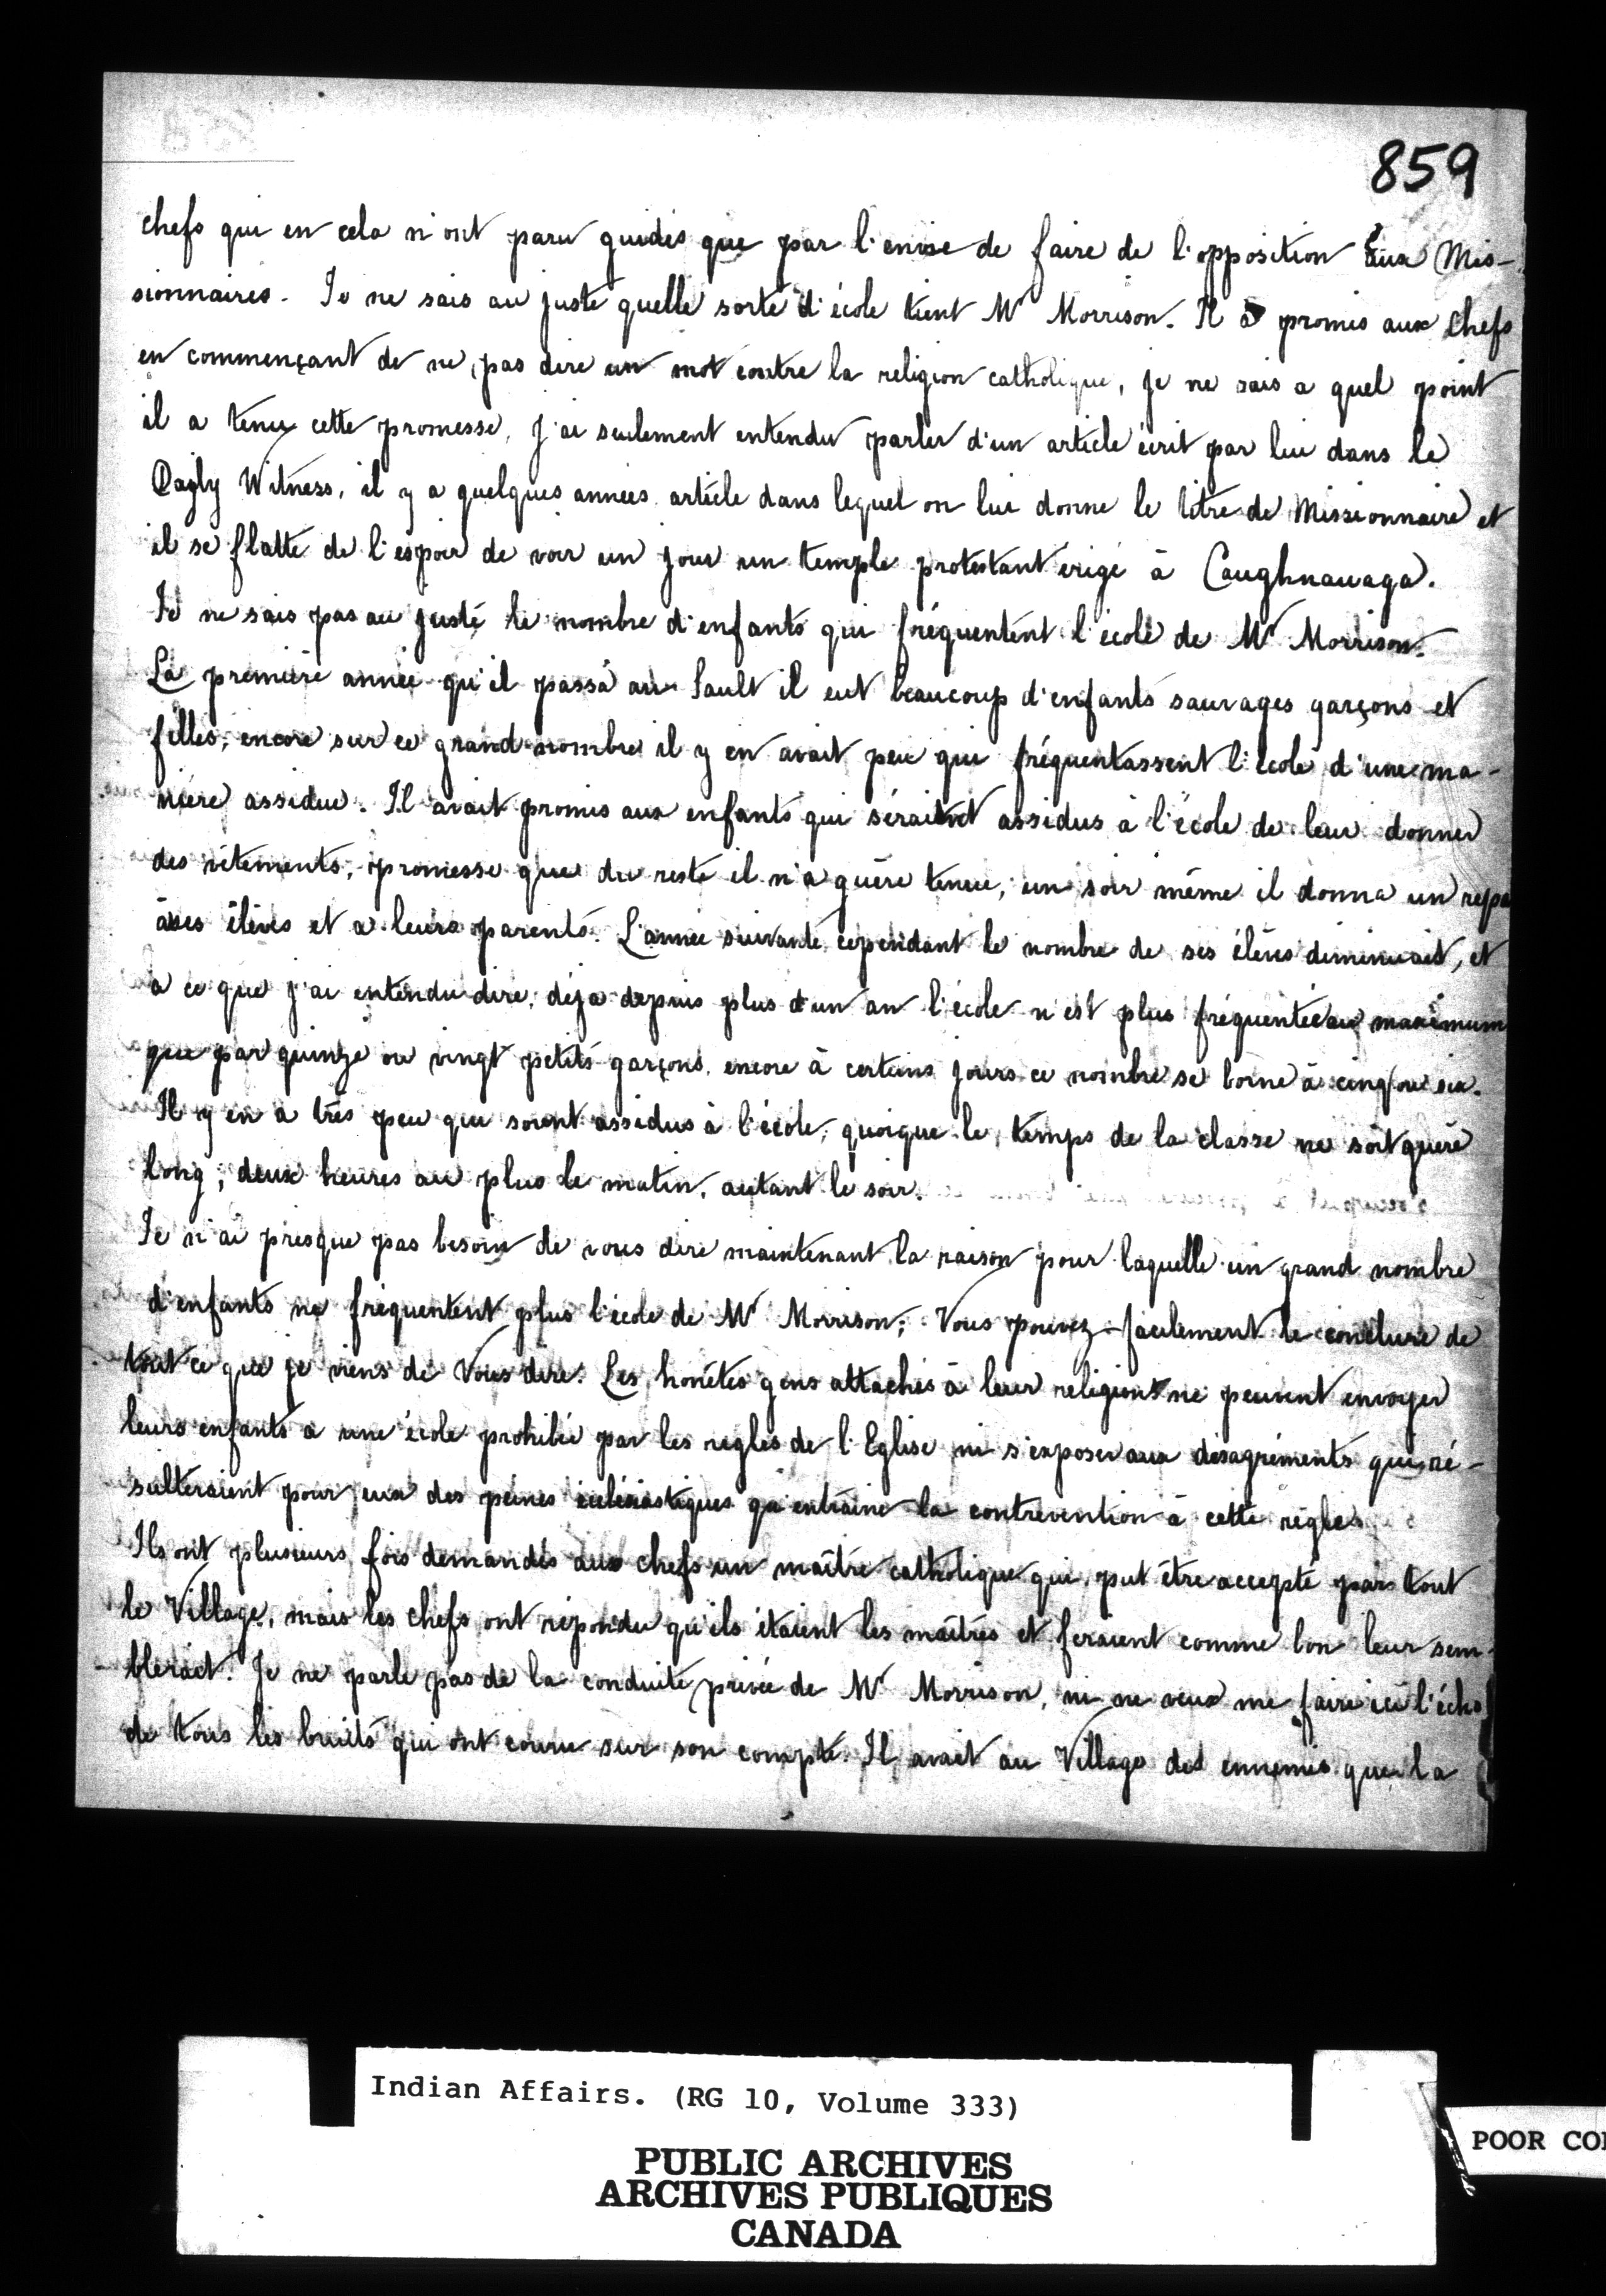 859
chefs qui en cela n'ont paru guidés que par l'envie de faire de l'opposition aux Mis-
sionnaires. Je ne sais au juste quelle sorte d'école tient Mr Morrison. Il a promis aux chefs
en commençant de ne pas dire un mot contre la religion catholique, je ne sais a quel point
il a tenu cette promesse, j'ai seulement entendu parler d'un article écrit par lui dans le
Dayly Witness, il y a quelques années article dans lequel on lui donne le titre de Missionnaire et
il se flatte de l'espoir de voir un jour un temple protestant érigé à Caughnawaga.
Je ne sais pas au juste le nombre d'enfants qui fréquentent l'école de Mr Morrison.
La première année qu'il passa au Sault il eut beaucoup d'enfants sauvages garçons et
filles, encore sur ce grand nombre il y en avait peu qui fréquentassent l'école d'une ma-
nière assidue. Il avait promis aux enfants qui séraient assidus à l'école de leur donner
des vêtements, promesse que du reste il n'a guère tenue; un soir même il donna un repa
à ses élèves et a leurs parents. L'année suivante cependant le nombre de ses élèves diminuait, et
a ce que j'ai entendu dire, déja depuis plus d'un an l'école n'est plus fréquentée au maximum
que par quinze ou vingt petits garçons, encore à certains jours ce nombre se borne à cinq ou six.
Il y en a très peu qui soient assidus à l'école, quoique le temps de la classe ne soit guère
long; deux heures au plus le matin, autant le soir.
Je n'ai presque pas besoin de vous dire maintenant la raison pour laquelle un grand nombre
d'enfants ne fréquentent plus l'école de Mr Morrison; Vous pouvez facilement le conclure de
tout ce que je viens de Vous dire. Les honêtes gens attachés à leur religion ne peuvent envoyer
leurs enfants a une école prohibée par les regles de l'Eglise ni s'exposer aux désagréments qui ré-
sulteraient pour eux des peines ecclésiastiques qu'entraine la contrevention à cette règles
Ils ont plusieurs fois demandés aux chefs un maître catholique qui put être accepté par tout
le Village, mais les chefs ont répondu qu'ils étaient les maîtres et feraient comme bon leur sem-
blerait. Je ne parle pas de la conduite privée de Mr Morrison, ni ne veux me faire ici l'écho
de tous les bruits qui ont couru sur son compte. Il avait au Village des ennemis que la
Indian Affairs. (RG 10, Volume 333)
PUBLIC ARCHIVES
ARCHIVES PUBLIQUES
CANADA
POOR CO